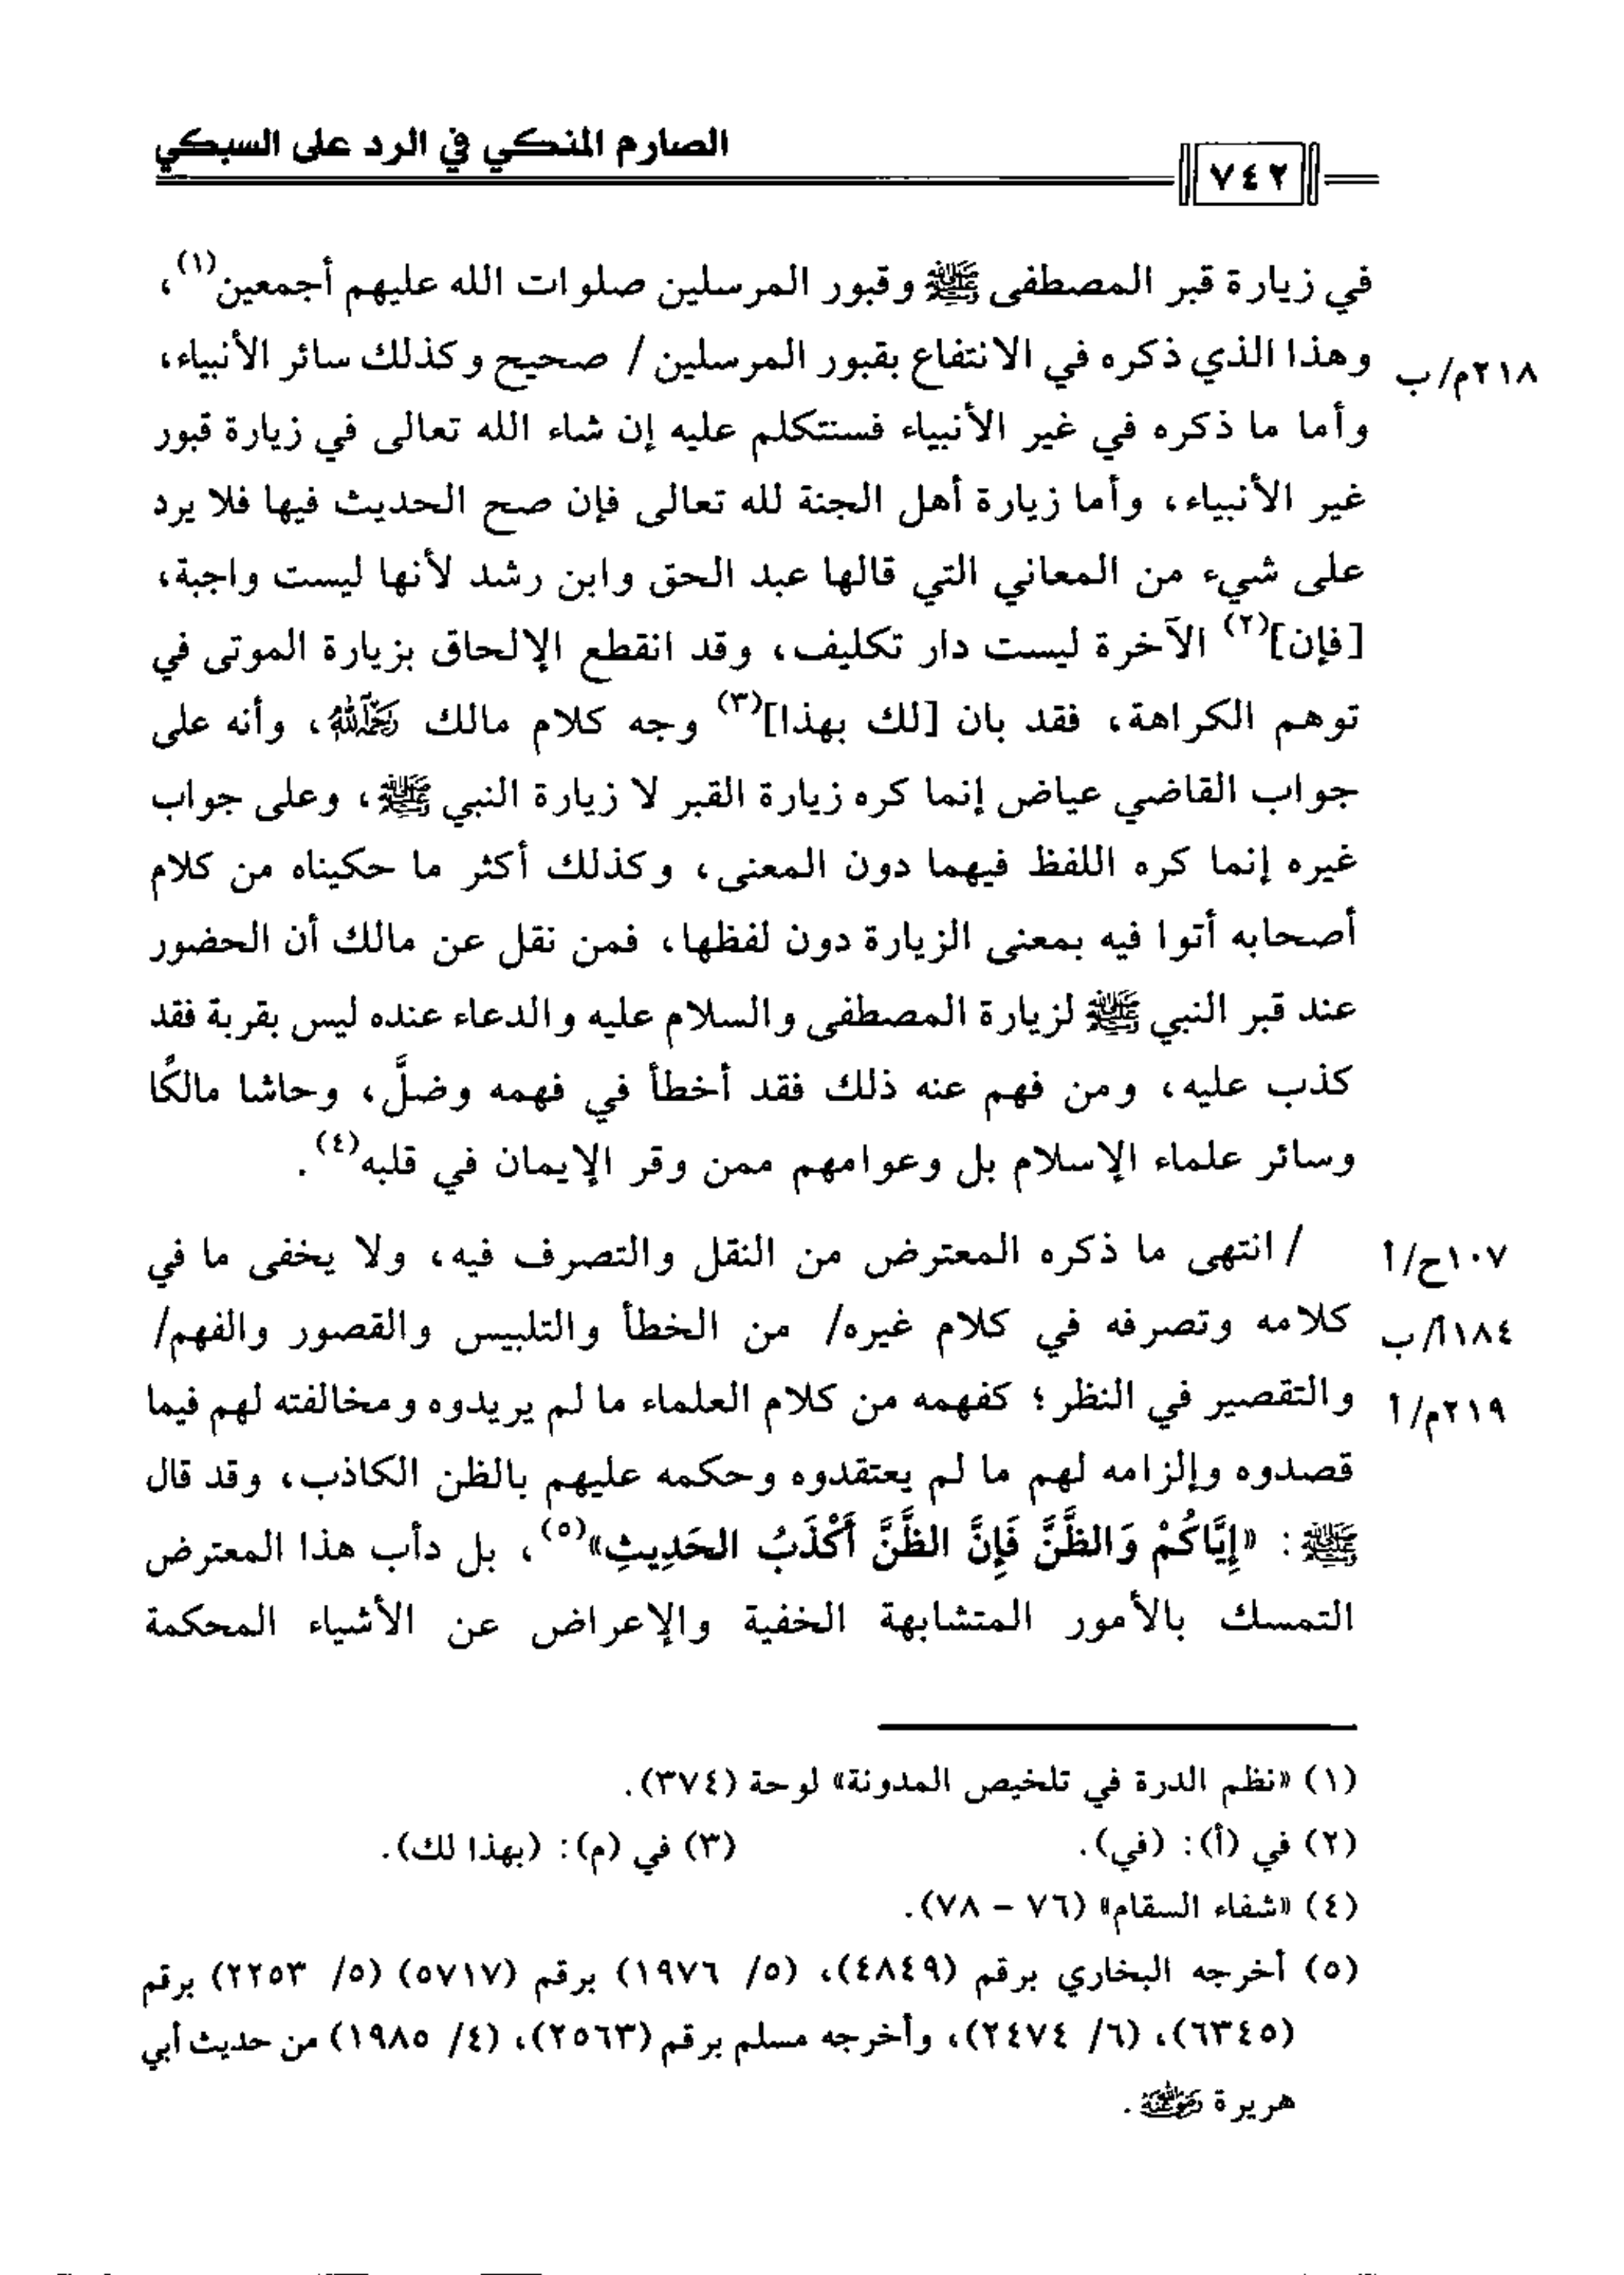 الصارم المنكي في الرد على السبكي
٧٤٢
في زيارة قبر المصطفى ﷺ وقبور المرسلين صلوات الله عليهم أجمعين(١)،
وهذا الذي ذكره في الانتفاع بقبور المرسلين / صحيح وكذلك سائر الأنبياء،
٢١٨م/ب
وأما ما ذكره في غير الأنبياء فسنتكلم عليه إن شاء الله تعالى في زيارة قبور
غير الأنبياء، وأما زيارة أهل الجنة لله تعالى فإن صح الحديث فيها فلا يرد
على شيء من المعاني التي قالها عبد الحق وابن رشد لأنها ليست واجبة،
[فإن](٢) الآخرة ليست دار تكليف، وقد انقطع الإلحاق بزيارة الموتى في
توهم الكراهة، فقد بان [لك بهذا](٣) وجه كلام مالك رحمه الله، وأنه على
جواب القاضي عياض إنما كره زيارة القبر لا زيارة النبي ﷺ، وعلى جواب
غيره إنما كره اللفظ فيهما دون المعنى، وكذلك أكثر ما حكيناه من كلام
أصحابه أتوا فيه بمعنى الزيارة دون لفظها، فمن نقل عن مالك أن الحضور
عند قبر النبي ﷺ لزيارة المصطفى والسلام عليه والدعاء عنده ليس بقربة فقد
كذب عليه، ومن فهم عنه ذلك فقد أخطأ في فهمه وضلَّ، وحاشا مالكًا
وسائر علماء الإسلام بل وعوامهم ممن وقر الإيمان في قلبه(٤).
/ انتهى ما ذكره المعترض من النقل والتصرف فيه، ولا يخفى ما في
١٠٧ح/أ
كلامه وتصرفه في كلام غيره/ من الخطأ والتلبيس والقصور والفهم/
١٨٤أ/ب
والتقصير في النظر؛ كفهمه من كلام العلماء ما لم يريدوه ومخالفته لهم فيما
٢١٩م/أ
قصدوه وإلزامه لهم ما لم يعتقدوه وحكمه عليهم بالظن الكاذب، وقد قال
ﷺ: «إِيَّاكُمْ وَالظَّنَّ فَإِنَّ الظَّنَّ أَكْذَبُ الحَدِيثِ»(٥)، بل دأب هذا المعترض
التمسك بالأمور المتشابهة الخفية والإعراض عن الأشياء المحكمة
(١) «نظم الدرة في تلخيص المدونة» لوحة (٣٧٤).
(٢) في (أ): (في). (٣) في (م): (بهذا لك).
(٤) «شفاء السقام» (٧٦ - ٧٨).
(٥) أخرجه البخاري برقم (٤٨٤٩)، (٥/ ١٩٧٦) برقم (٥٧١٧) (٥/ ٢٢٥٣) برقم
(٦٣٤٥)، (٦/ ٢٤٧٤)، وأخرجه مسلم برقم (٢٥٦٣)، (٤/ ١٩٨٥) من حديث أبي
هريرة رضي الله عنه.